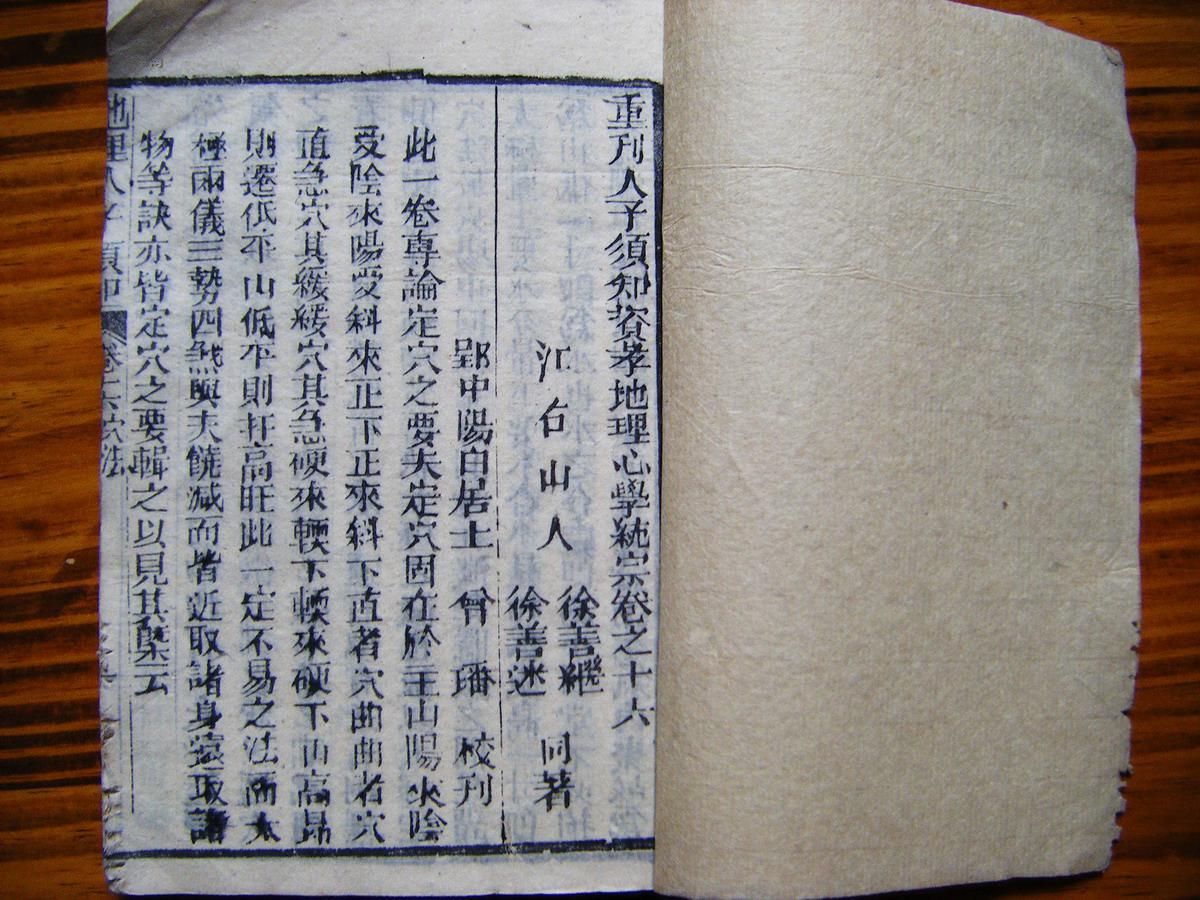 重刊人子須知資孝地理心學統宗卷之十六
江右山人 徐善繼 徐善述 同著
郢中陽白居士 曾璠 校刊
此一卷專論定穴之要夫定穴固在於主山陽來陰
受陰來陽受斜來正下正來斜下直者穴曲曲者穴
直急穴其緩緩穴其急硬來輭下輭來硬下山高昂
則遷低平山低平則扦高旺此一定不易之法而太
極兩儀三勢四煞與夫饒减而皆近取諸身遠取諸
物等訣亦皆定穴之要輯之以見其槩云
地理人子須知 卷六穴法